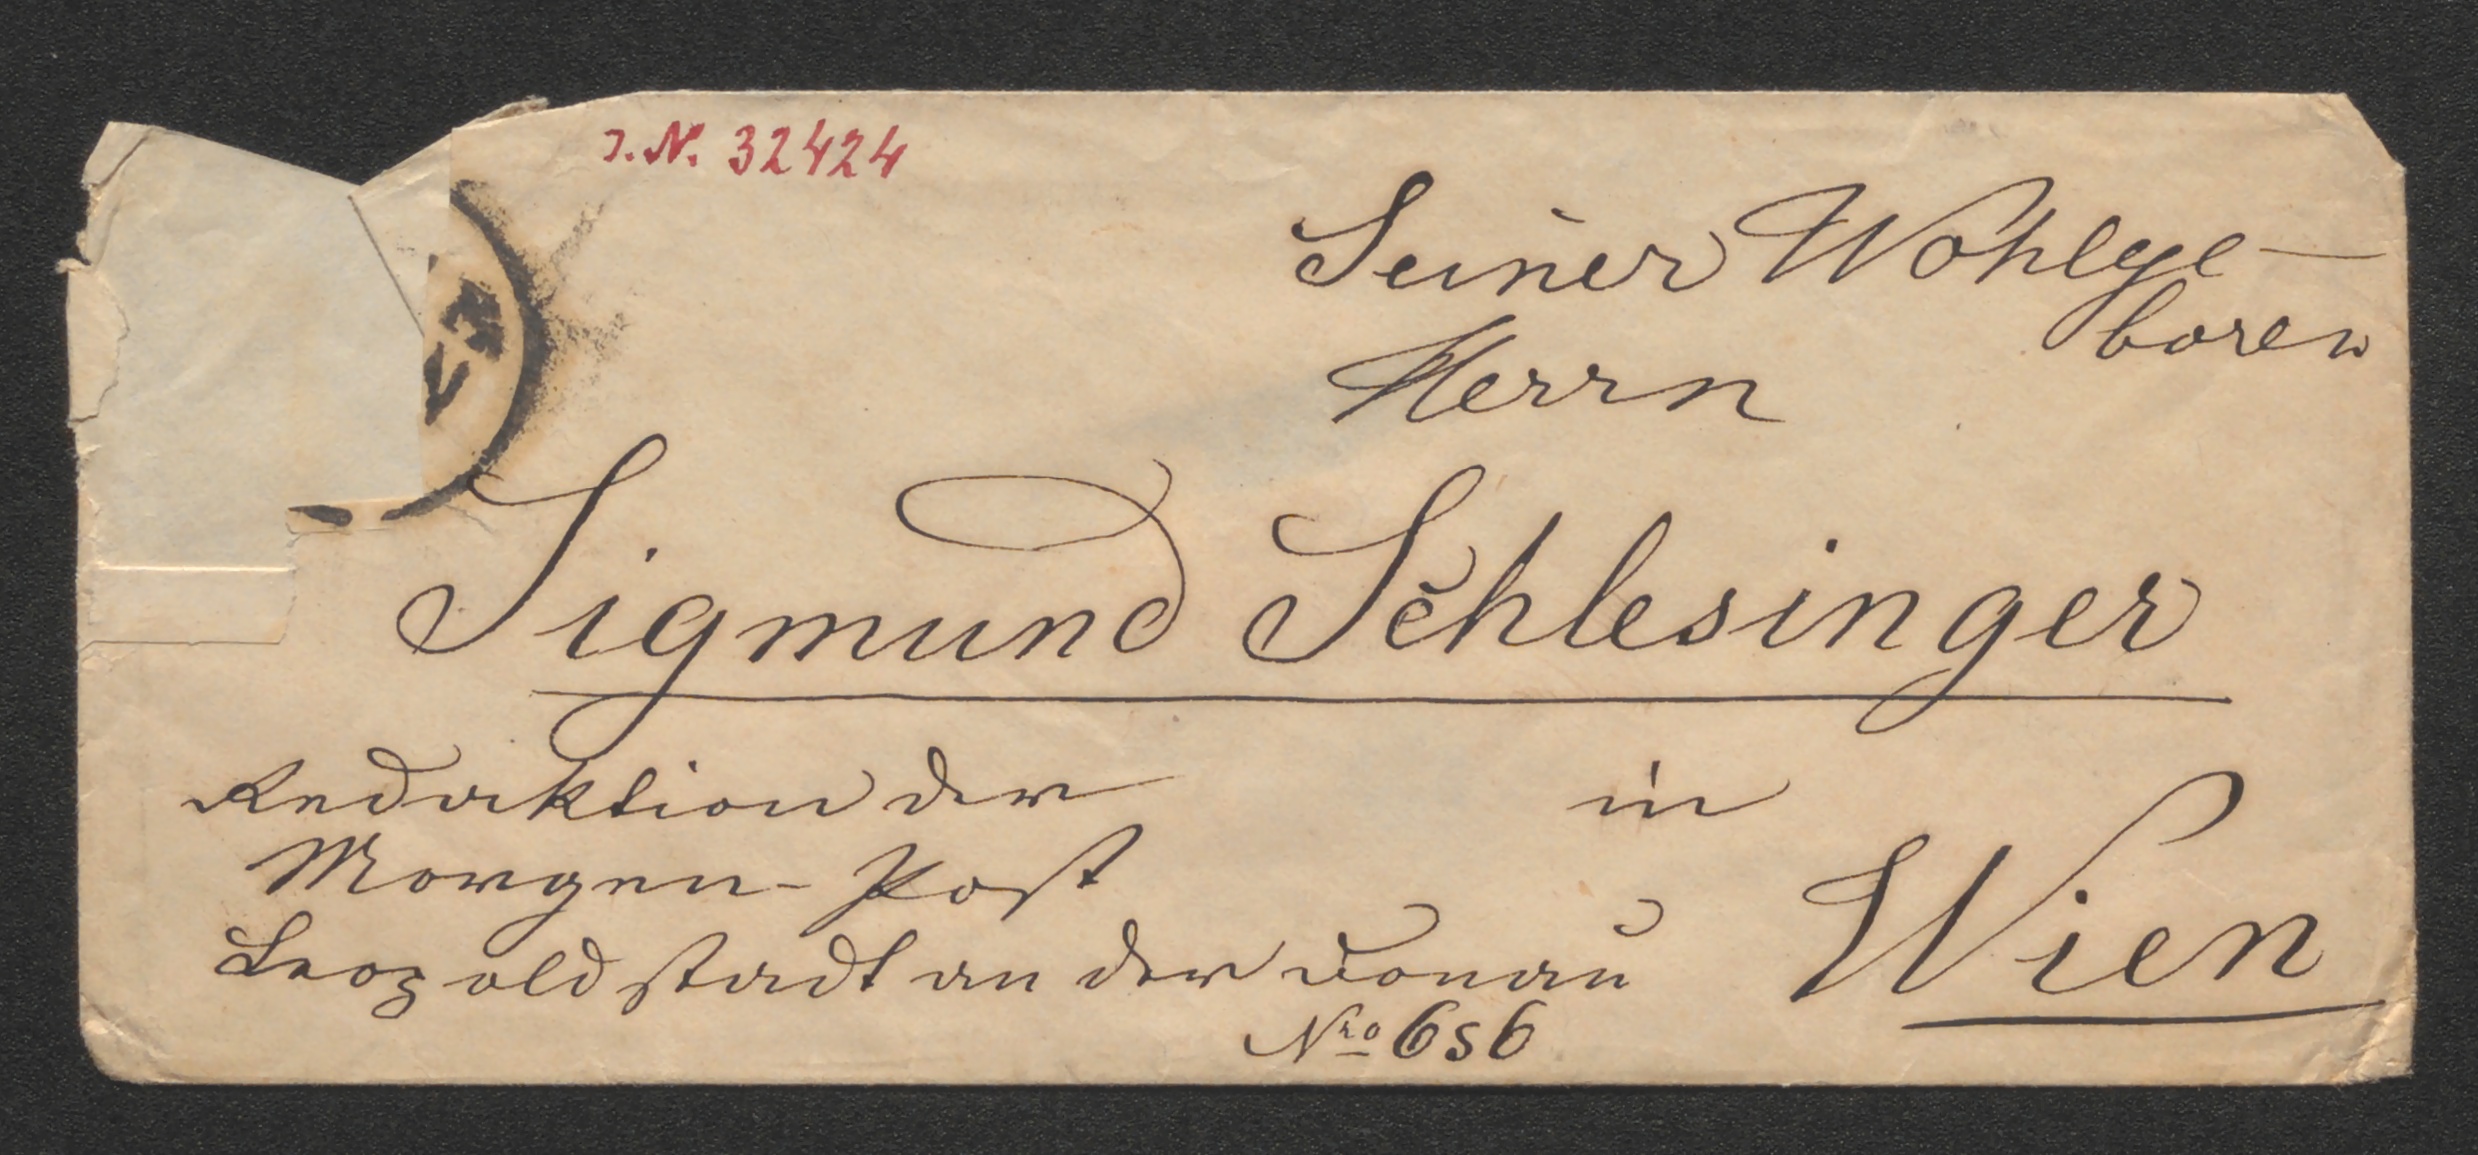 I.N. 32424
Seiner Wohlge-
boren
Herrn
Sigmund Schlesinger
Redaktion der
in
Morgen-Post
Wien
Leopoldstadt an der Donau
Nro 656